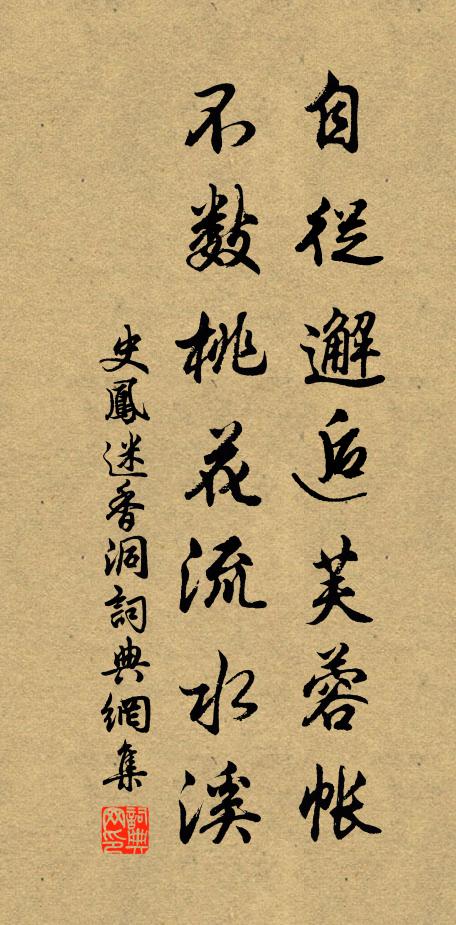 自從邂逅芙蓉帳
不數桃花流水溪
史鳳迷香洞詞典網集
詞典網印